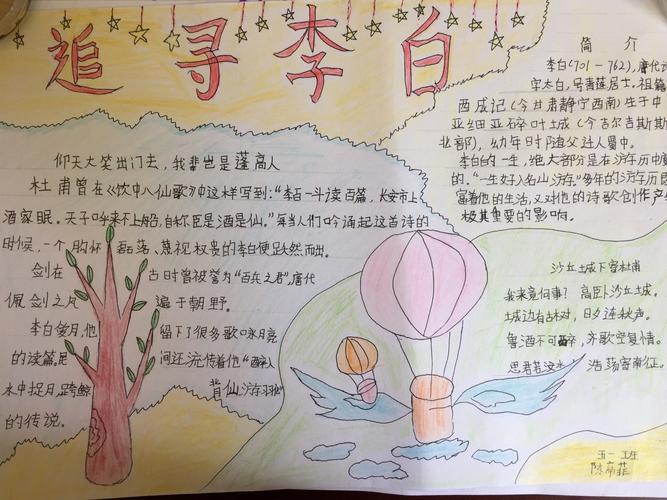 追寻李白
仰天大笑出门去,我辈岂是蓬高人
杜甫曾在《饮中八仙歌》中这样写到:“李白一斗读百篇,长安市上
酒家眠。天子呼来不上船,自称臣是酒是仙。”每当人们吟诵起这首诗的
时候,一个胸怀磊落、蔑视权贵的李白便跃然而出。
剑在古时曾被誉为“百兵之君”,唐代
佩剑之风遍于朝野。
李白爱月,他留下了很多歌咏月亮
的读篇,民间还流传着他“醉入
水中捉月,跨鲸背仙游羽化”
的传说。
简介
李白(701-762),唐代
字太白,号青莲居士。祖籍
西成记(今甘肃静宁西南)生于中
亚细亚碎叶城(今吉尔吉斯斯
北部),幼年时随父迁入蜀中。
李白的一生,绝大部分是在游历中度
的。“一生好入名山游。”多年的游历
富着他的生活,又对他的诗歌创作产
极其重要的影响。
沙丘城下寄杜甫
我来竟何事?高卧沙丘城。
城边有古树,日夕连秋声。
鲁酒不可醉,齐歌空复情。
思君若汶水,浩荡寄南征。
五一班